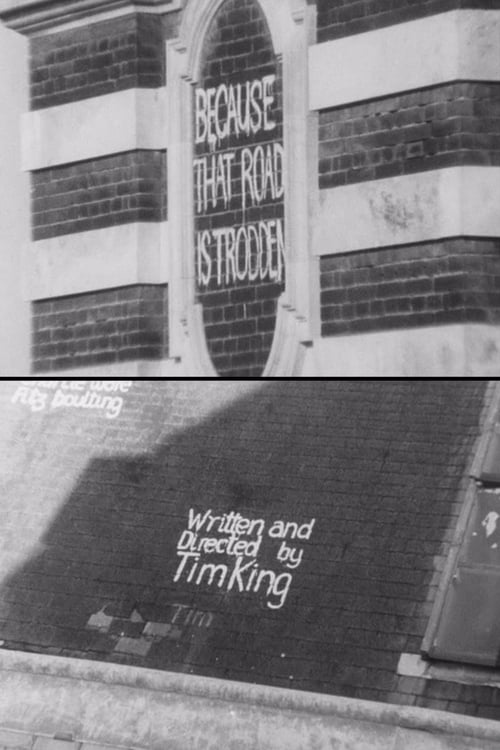 BECAUSE
THAT ROAD
IS TRODDEN
Fitz boulting
Written and
Directed by
Tim King
Tim